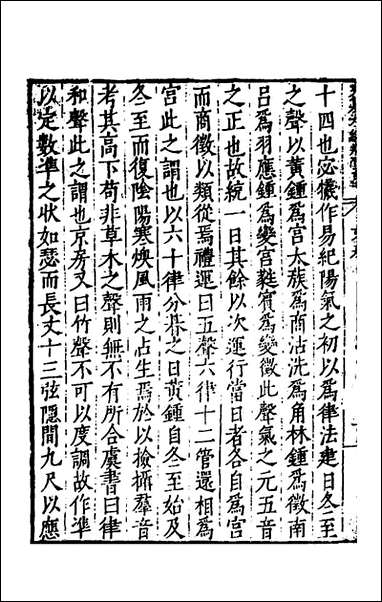 十四也宓犧作易紀陽氣之初以爲律法建日冬至
之聲以黃鍾爲宮太簇爲商沽洗爲角林鍾爲徵南
吕爲羽應鍾爲變宮蕤賓爲變徵此聲氣之元五音
之正也故統一日其餘以次運行當日者各自爲宮
而商徵以類從焉禮運曰五聲六律十二管還相爲
宮此之謂也以六十律分朞之日黃鍾自冬至始及
冬至而復陰陽寒燠風雨之占生焉於以檢攝羣音
考其高下苟非草木之聲則無不有所合虞書曰律
和聲此之謂也京房又曰竹聲不可以度調故作準
以定數準之狀如瑟而長丈十三弦隱間九尺以應